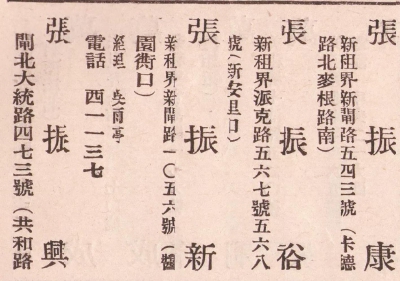 張振康
新租界新閘路五四三號（卡德
路北麥根路南）
張振裕
新租界派克路五六七號五六八
號（新安旦口）
張振新
新租界新閘路一〇五六號（醬
園衖口）
經理 吳爾亭
電話 西一一三七
張振興
閘北大統路四七三號（共和路